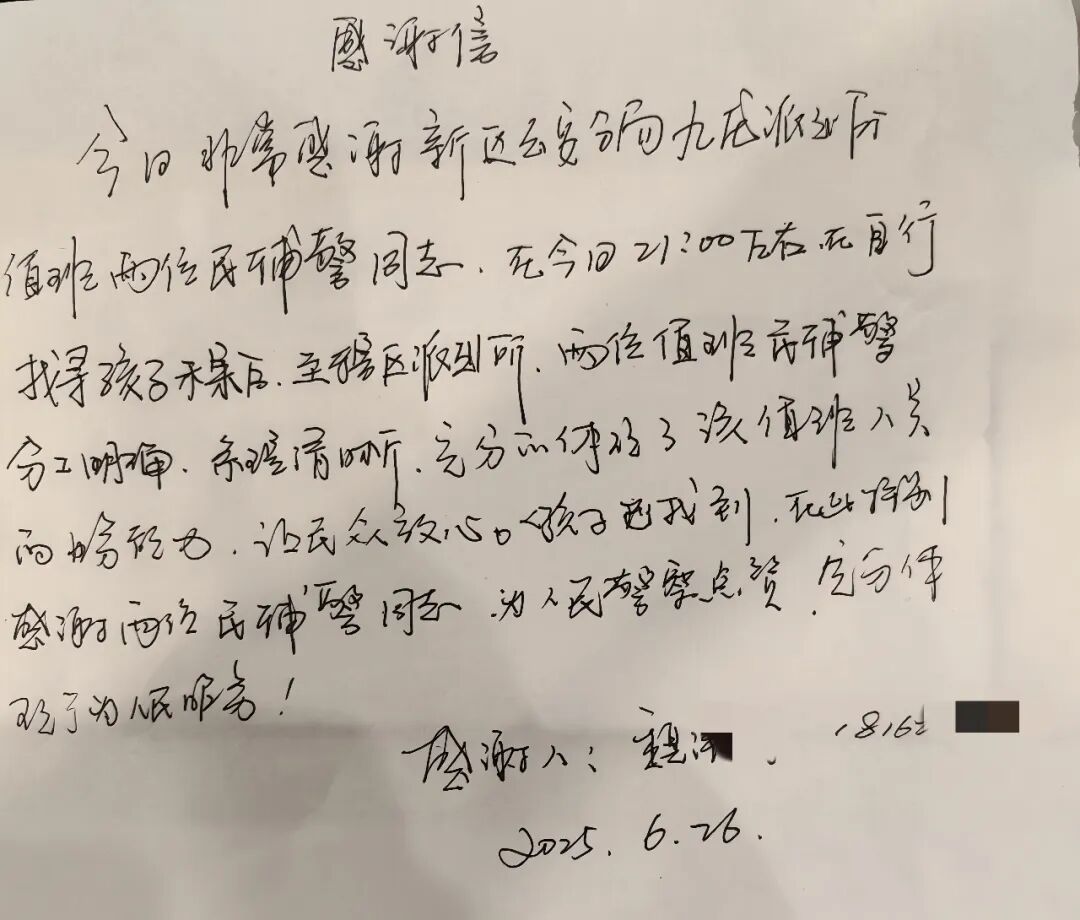 感谢信
今日非常感谢新区公安分局九龙派出所
值班两位民辅警同志、在今日21:00左右在自行
找寻孩子未果后、至辖区派出所、两位值班民辅警
分工明确、条理清晰、充分的体现了该值班人员
的能力、让民众放心。孩子已找到、在此特别
感谢两位民辅警同志、为人民警察点赞、充分体
现了为人民服务!
感谢人:
1816
2025.6.26.